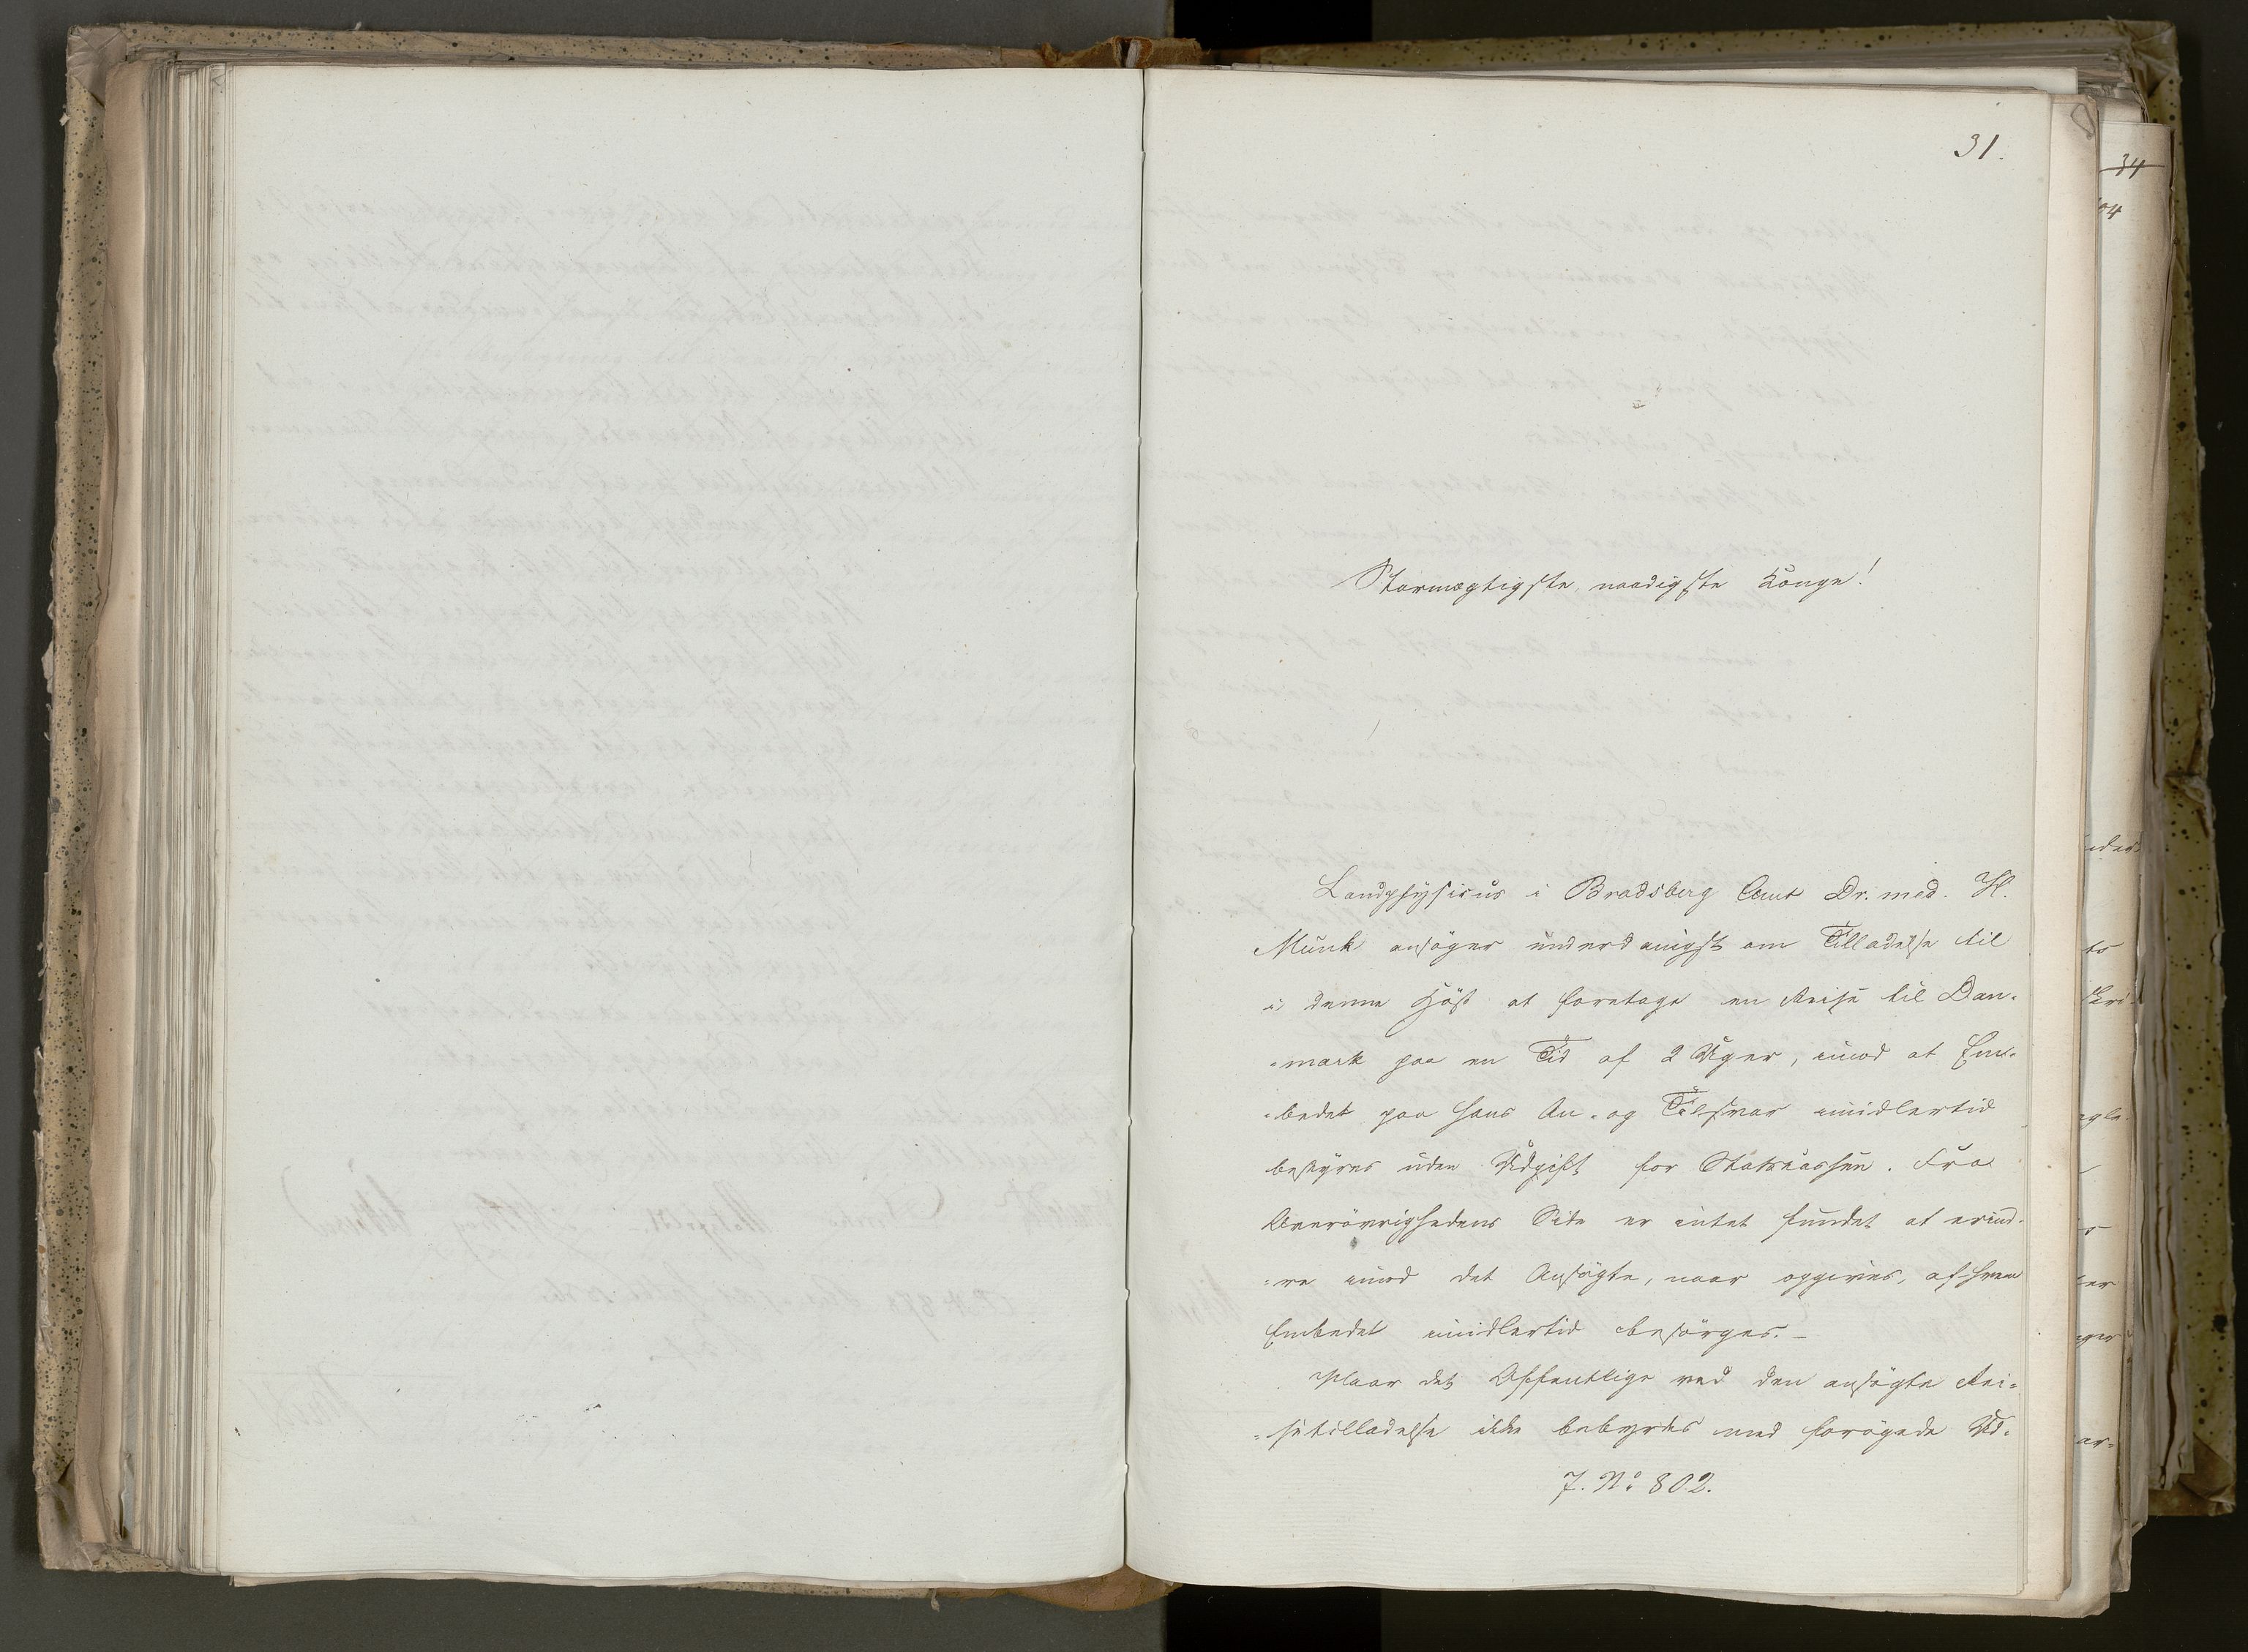 31.
Stormægtigste, naadigste Konge!
Landphysicus i Bradsberg Amt Dr. med. H.
Munk ansøger underdanigst om Tilladelse til
i denne Høst at foretage en Reise til Dan-
-mark paa en Tid af 2 Uger, imod at Em-
-bedet paa hans An- og Tilsvar imidlertid
bestyres uden Udgift for Statskassen. Fra
Overøvrighedens Side er intet fundet at erind-
-re imod det Ansøgte, naar opgives, af hvem
Embedet imidlertid besørges. -
Naar det Offentlige ved den ansøgte Rei-
-setilladelse ikke bebyrdes med forøgede Ud-
7. No 802.
34